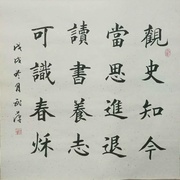 觀史知今
當思進退
讀書養志
可識春秌
戊戌冬月